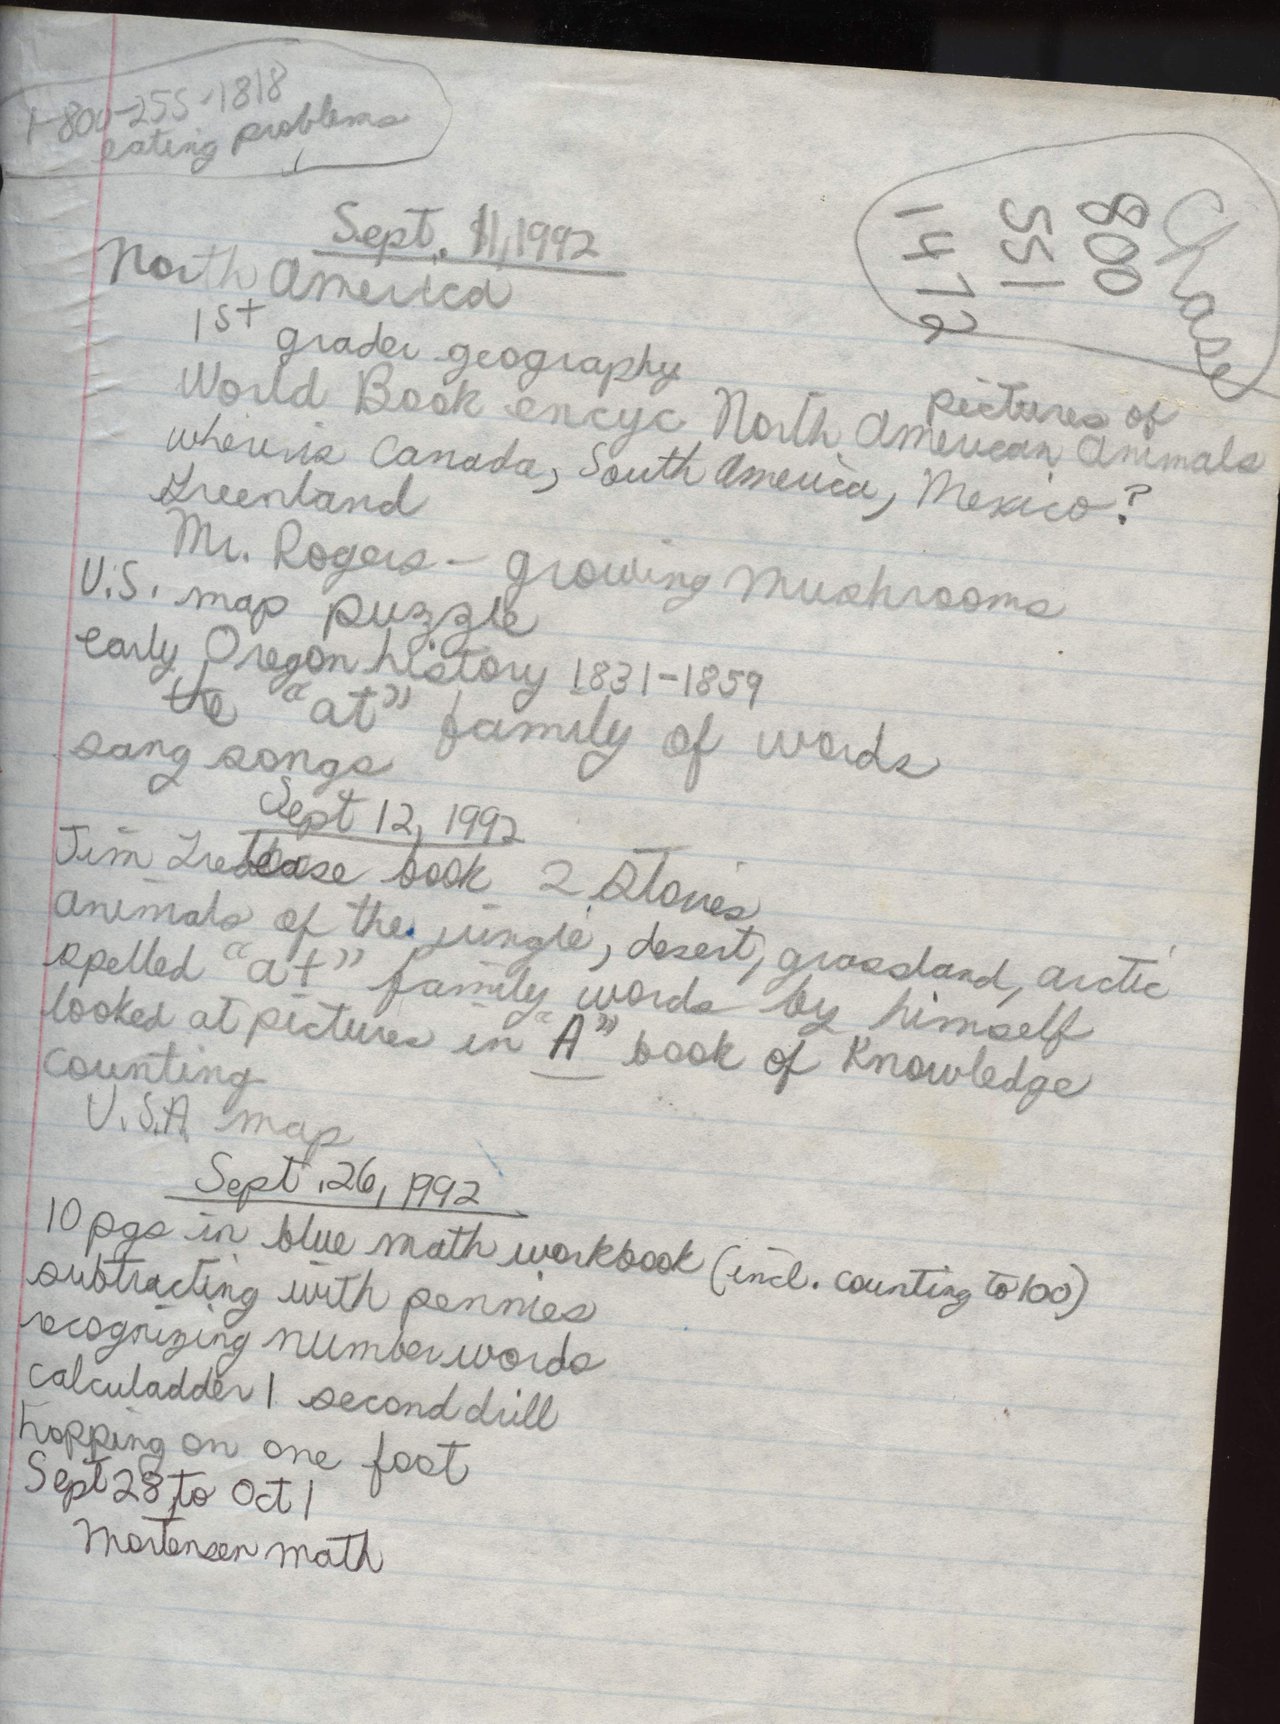 1-800-255-1818
eating problems
Chase
800
551
1472
Sept. 11, 1992
North America
1st grader geography
pictures of
World Book encyc North American Animals
where is Canada, South America, Mexico?
Greenland
Mr. Rogers - growing mushrooms
U.S. map puzzle
early Oregon history 1831-1859
the "at" family of words
sang songs
Sept 12, 1992
Jim Trelease book 2 stories
animals of the jungle, desert, grassland, arctic
spelled "at" family words by himself
looked at pictures in "A" book of Knowledge
counting
U.S.A. map
Sept. 26, 1992
10 pgs in blue math workbook (incl. counting to 100)
subtracting with pennies
recognizing number words
calculadder 1 second drill
hopping on one foot
Sept 28 to Oct 1
Mortensen math